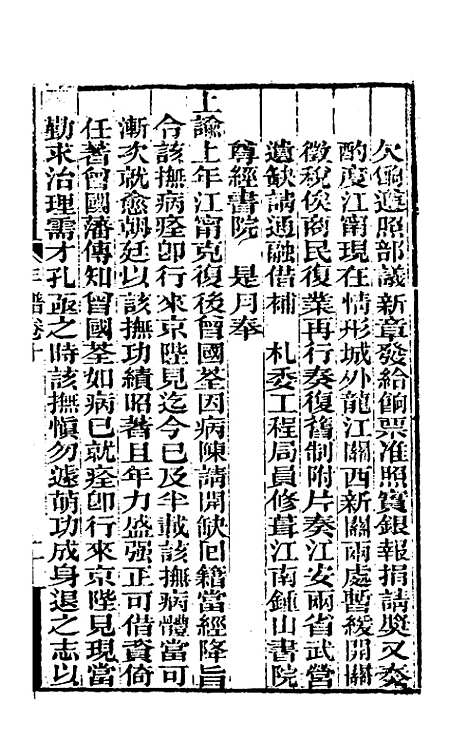 欠餉遵照部議新章發給餉票准照實銀報捐請奬又奏
酌度江甯現在情形城外龍江關西新關兩處暫緩開關
徵稅俟商民復業再行奏復舊制附片奏江安兩省武營
遺缺請通融借補　札委工程局員修葺江南鍾山書院
尊經書院　是月奉
上諭上年江甯克復後曾國荃因病陳請開缺回籍當經降旨
令該撫病痊卽行來京陛見迄今已及半載該撫病體當可
漸次就愈朝廷以該撫功績昭著且年力盛强正可借資倚
任著曾國藩傳知曾國荃如病已就痊卽行來京陛見現當
勤求治理需才孔亟之時該撫愼勿遽萌功成身退之志以
年譜卷十